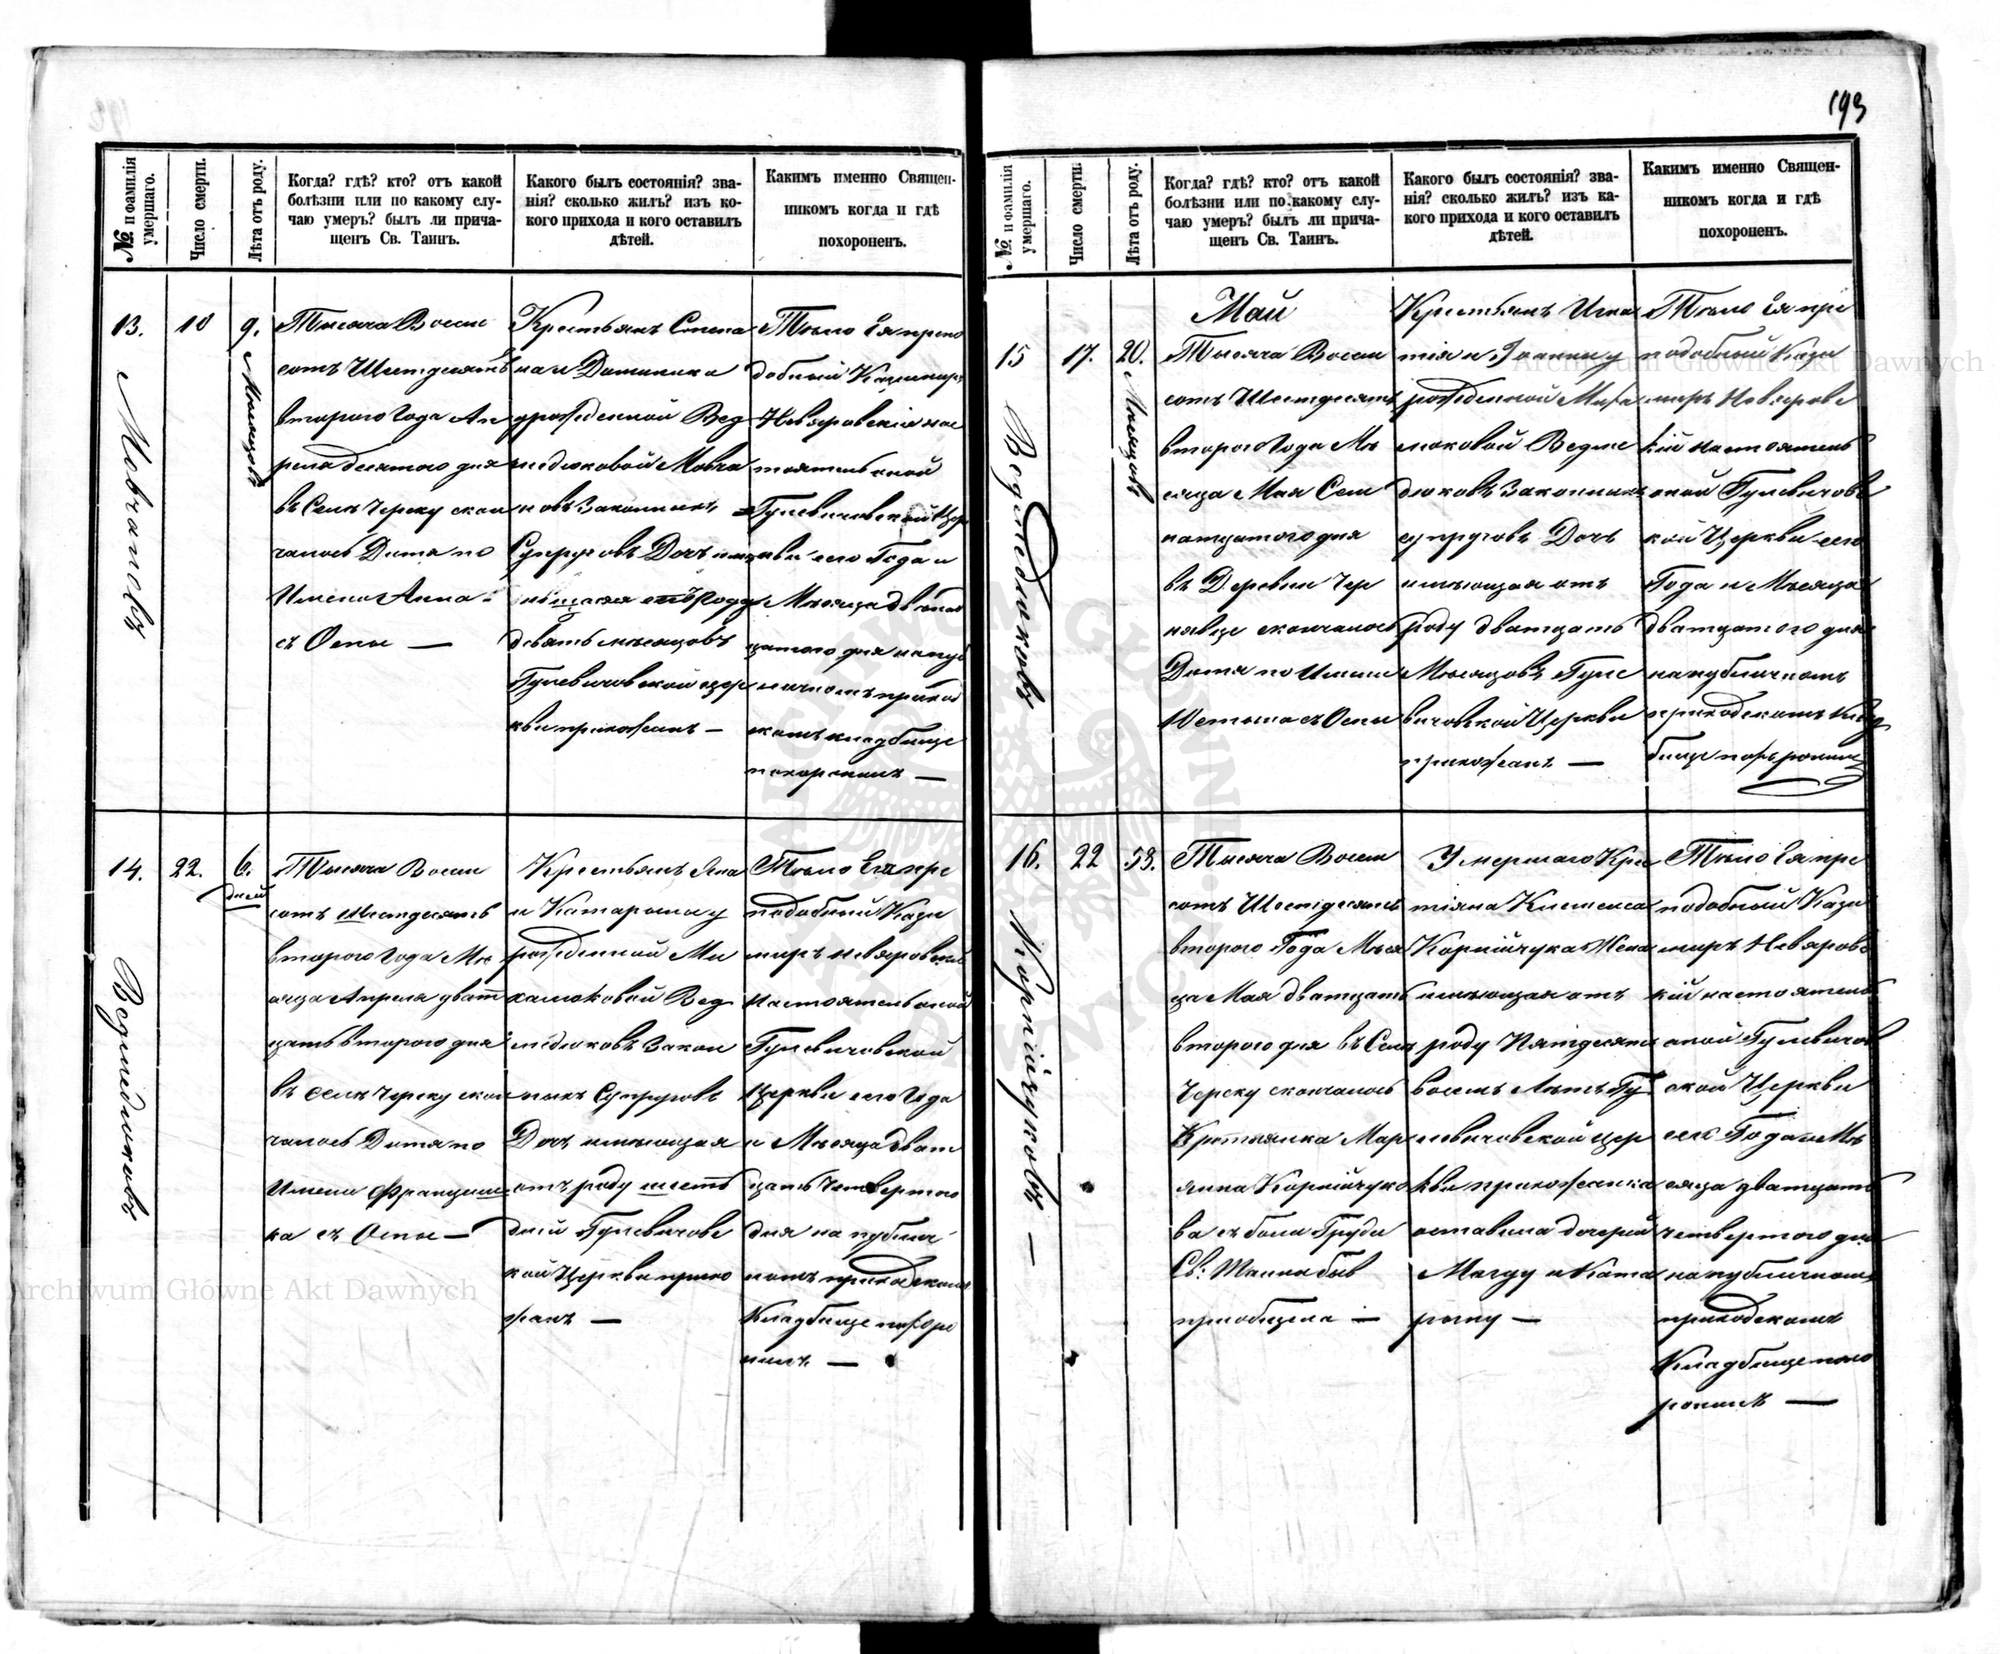 193
№ и фамилія умершаго.
Число смерти.
Лѣта отъ роду.
Когда? гдѣ? кто? отъ какой
болѣзни или по какому слу-
чаю умеръ? былъ ли прича-
щенъ Св. Таинъ.
Какого былъ состоянія? зва-
нія? сколько жилъ? изъ ко-
кого прихода и кого оставилъ
дѣтей.
Какимъ именно Священ-
никомъ когда и гдѣ
похороненъ.
13.
Мовчановъ
10
9.
Мѣсяцовъ
Тысяча Восем
сотъ Шестдесятъ
втораго Года Ап
реля десятого дня
въ Селѣ Черску скон
чалось Дитя по
Имени Анна
съ Оспы —
Крестьянъ
на и Доминика
урожденной Вед
медюковой Мовча
новъ Законныхъ
Супруговъ Дочь
отъ Роду
девять мѣсяцовъ
Гулевичовской цер
кви прихожанъ —
Тѣло Ея препо
добный Казимиръ
Невяровскій нас
тоятель оной
Гулевичовской Цер
кви его Года и
Мѣсяца двенад
цатого дня на пуб
личномъ приход
скомъ кладбище
похоронилъ —
14.
Ведмедюковъ
22.
6.
дней
Тысяча Восем
сотъ шестдесятъ
втораго Года Мѣ
сяца Апреля дватт
цать второго дня
въ селѣ Черску скон
чалось Дитя по
Имени Францишка
ка съ Оспы —
Крестьянъ Яна
и Катарины у
рожденной Ми
халюковой Вед
медюковъ Закон
ныхъ Супруговъ
Дочь имѣющая
отъ роду шесть
дней Гулевичовс
кой Церкви прихо
жанъ —
Тѣло Ея пре
подобный Кази
миръ Невяровскій
настоятель оной
Гулевичовской
Церкви его Года
и Мѣсяца дват
цать Четвертого
дня на публич
номъ приходскомъ
Кладбище похоро
нилъ —
№ и фамилія умершаго.
Число смерти.
Лѣта отъ роду.
Когда? гдѣ? кто? отъ какой
болѣзни или по какому слу-
чаю умеръ? былъ ли прича-
щенъ Св. Таинъ.
Какого былъ состоянія? зва-
нія? сколько жилъ? изъ ка-
кого прихода и кого оставилъ
дѣтей.
Какимъ именно Священ-
никомъ когда и гдѣ
похороненъ.
15
Ведмедюковъ
17.
20.
Мѣсяцовъ
Май
Тысяча Восем
сотъ Шестдесятъ
втораго Года Мѣ
сяца Мая Сем
натцатого дня
въ Деревни Чер
нявце скончалось
Дитя по Имени
Юстына съ Оспы
Крестьянъ Игна
тія и Іоанны у
рожденной
люковой Ведме
дюковъ Законныхъ
супруговъ Дочь
имѣющая отъ
роду дватцать
Мѣсяцовъ Гуле
вичовской Церкви
прихожанъ —
Тѣло Ея пре
подобный Кази
миръ Невяровс
кій настоятель
оной Гулевичовс
кой Церкви его
Года и Мѣсяца
дватцатого дня
на публичномъ
приходскомъ Клад
бище похоронилъ
16.
Корнійчуковъ —
22
58.
Тысяча Восем
сотъ Шестдесятъ
второго Года Мѣся
ца Мая дватцать
второго дня въ Селѣ
Черску скончалась
Крестьянка Мар
янна Корнійчуко
ва съ боли Груди
Св: Таинъ бывъ
приобщена —
Умершаго Крес
тіяна Климента
Корнійчука Жена
имѣющая отъ
роду Пятдесятъ
восемъ Лѣтъ Гу
левичовской цер
кви прихожанка
оставила дочерей
Магду и Ката
рыну —
Тѣло Ея пре
подобный Кази
миръ Невяровс
кій настоятель
оной Гулевичов
ской Церкви
его Года и Мѣ
сяца дватцать
четвертого дня
на публичномъ
приходскомъ
Кладбище похо
ронилъ —
Archiwum Główne Akt Dawnych
Archiwum Główne Akt Dawnych